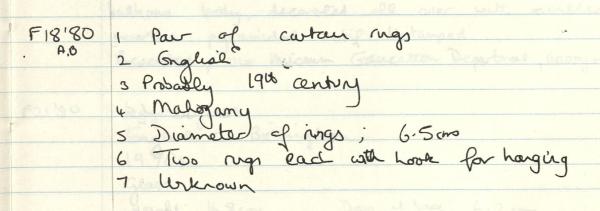 F18'80 1 Pair of curtain rings
A,B 2 English
3 Probably 19th century
4 Mahogany
5 Diameter of rings; 6.5cms
6 Two rings each with hook for hanging
7 Unknown